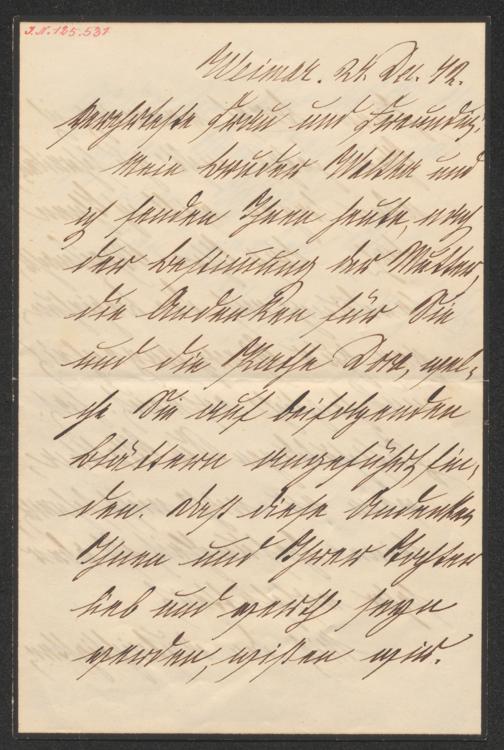 J.N. 125.531
Weimar. 24. Dec. 72.
Verehrteste Frau und Freundin!
Mein Bruder Walther und
ich senden Ihnen heute, nach
der Bestimmung der Mutter,
die Andenken für Sie
und die Pathe Dora, wel-
che Sie auf beifolgenden
Blättern angeführt fin-
den. Daß diese Andenken
Ihnen und Ihrer Tochter
lieb und werth seyn
werden, wißen wir.